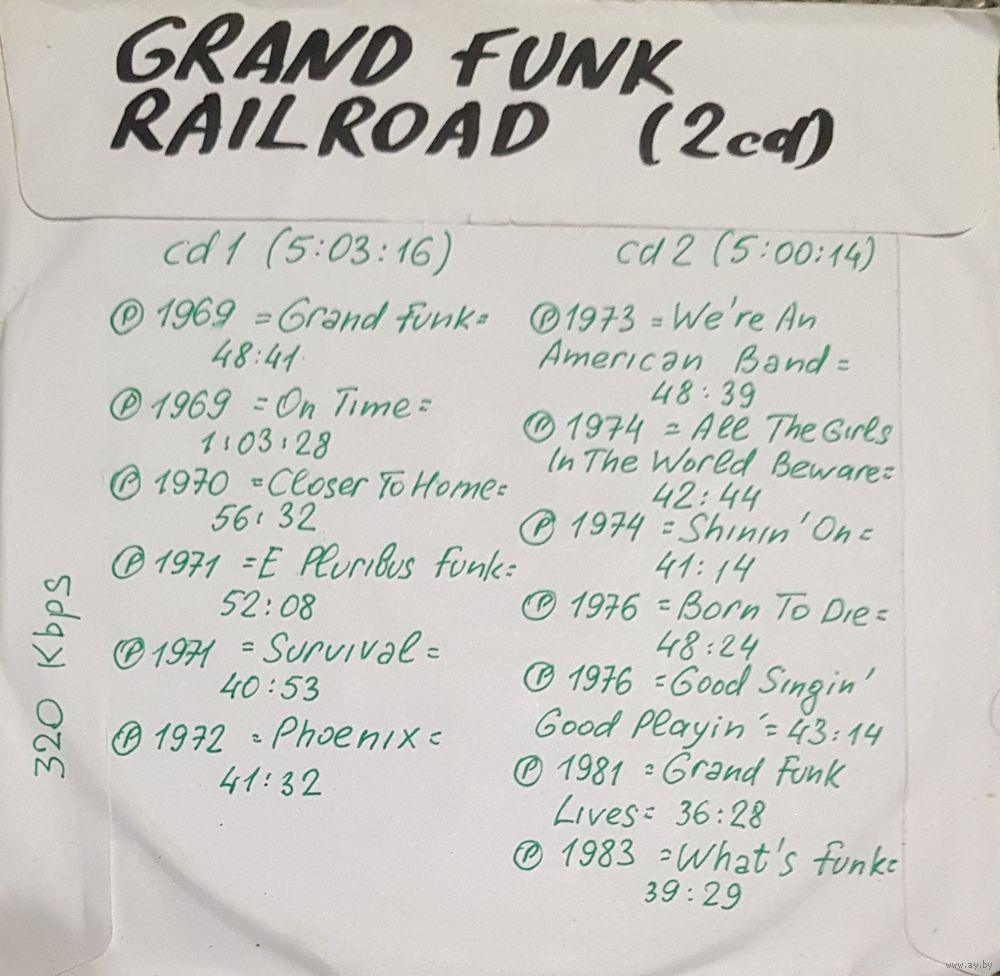 GRAND FUNK
RAILROAD (2cd)
cd 1 (5:03:16)
Ⓟ 1969 =Grand Funk=
48:41
Ⓟ 1969 =On Time=
1:03:28
Ⓟ 1970 =Closer To Home=
56:32
Ⓟ 1971 =E Pluribus Funk=
52:08
Ⓟ 1971 =Survival=
40:53
Ⓟ 1972 =Phoenix=
41:32
cd 2 (5:00:14)
Ⓟ 1973 =We're An
American Band=
48:39
Ⓟ 1974 =All The Girls
In The World Beware=
42:44
Ⓟ 1974 =Shinin' On=
41:14
Ⓟ 1976 =Born To Die=
48:24
Ⓟ 1976 =Good Singin'
Good Playin'= 43:14
Ⓟ 1981 =Grand Funk
Lives= 36:28
Ⓟ 1983 =What's Funk=
39:29
320 Kbps
www.ay.by